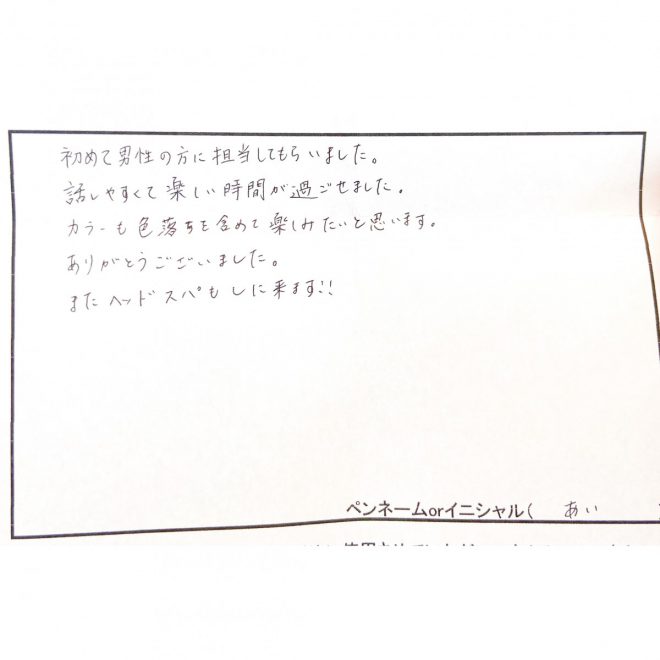 初めて男性の方に担当してもらいました。
話しやすくて楽しい時間が過ごせました。
カラーも色落ちを含めて楽しみたいと思います。
ありがとうございました。
またヘッドスパもしに来ます!!
ペンネームorイニシャル( あい